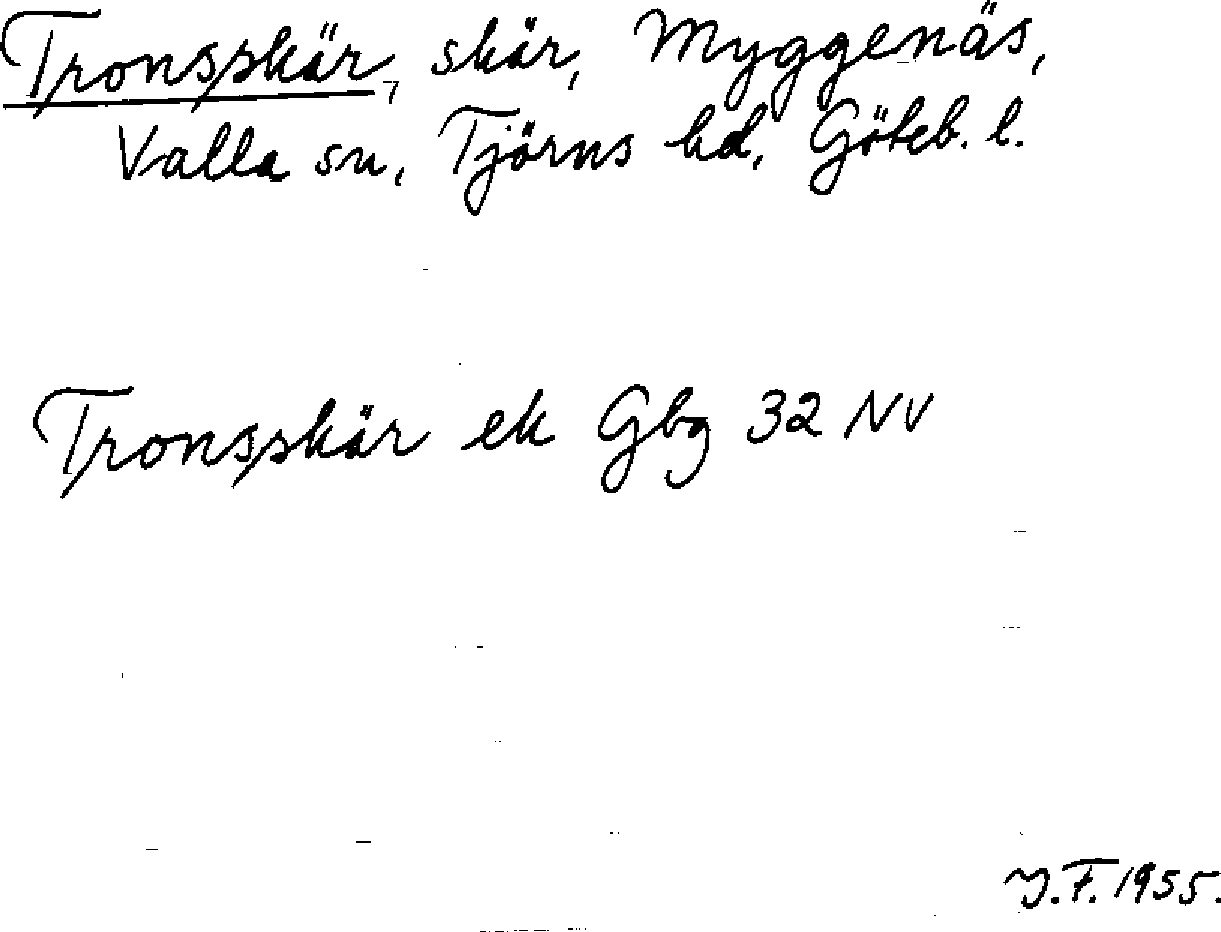 Tronsskär, skär, Myggenäs,
Valla sn, Tjörns hd, Göteb. l.
Tronsskär ek Gbg 32 NV
J.F. 1955.